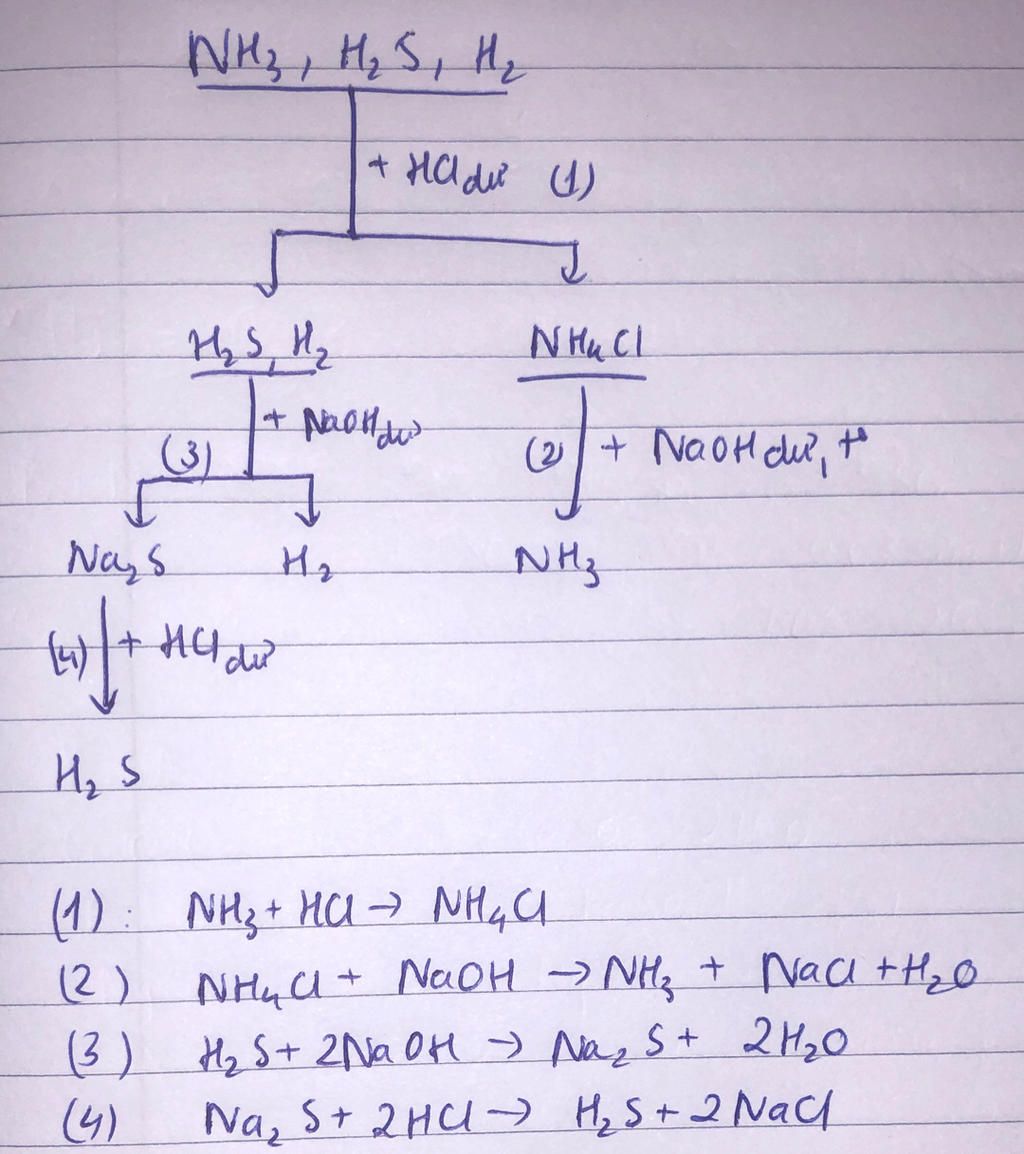 NH₃, H₂S, H₂
+ HCl dư (1)
H₂S, H₂ NH₄Cl
(3) + NaOH dư (2) + NaOH dư, t°
Na₂S H₂ NH₃
(4) + HCl dư
H₂S
(1): NH₃ + HCl → NH₄Cl
(2) NH₄Cl + NaOH → NH₃ + NaCl + H₂O
(3) H₂S + 2NaOH → Na₂S + 2H₂O
(4) Na₂S + 2HCl → H₂S + 2NaCl